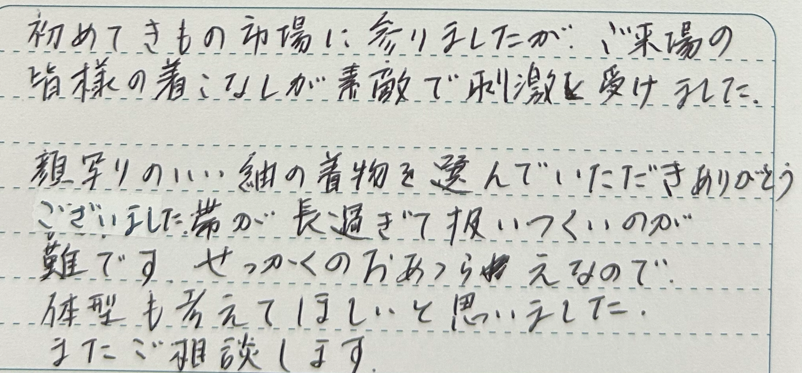 初めてきもの市場に参りましたが、ご来場の
皆様の着こなしが素敵で刺激を受けました。
顔写りのいい紬の着物を選んでいただきありがとう
ございました。帯が長過ぎて扱いつくいのが
難です せっかくのおあつらえなので、
体型も考えてほしいと思いました。
またご相談します。